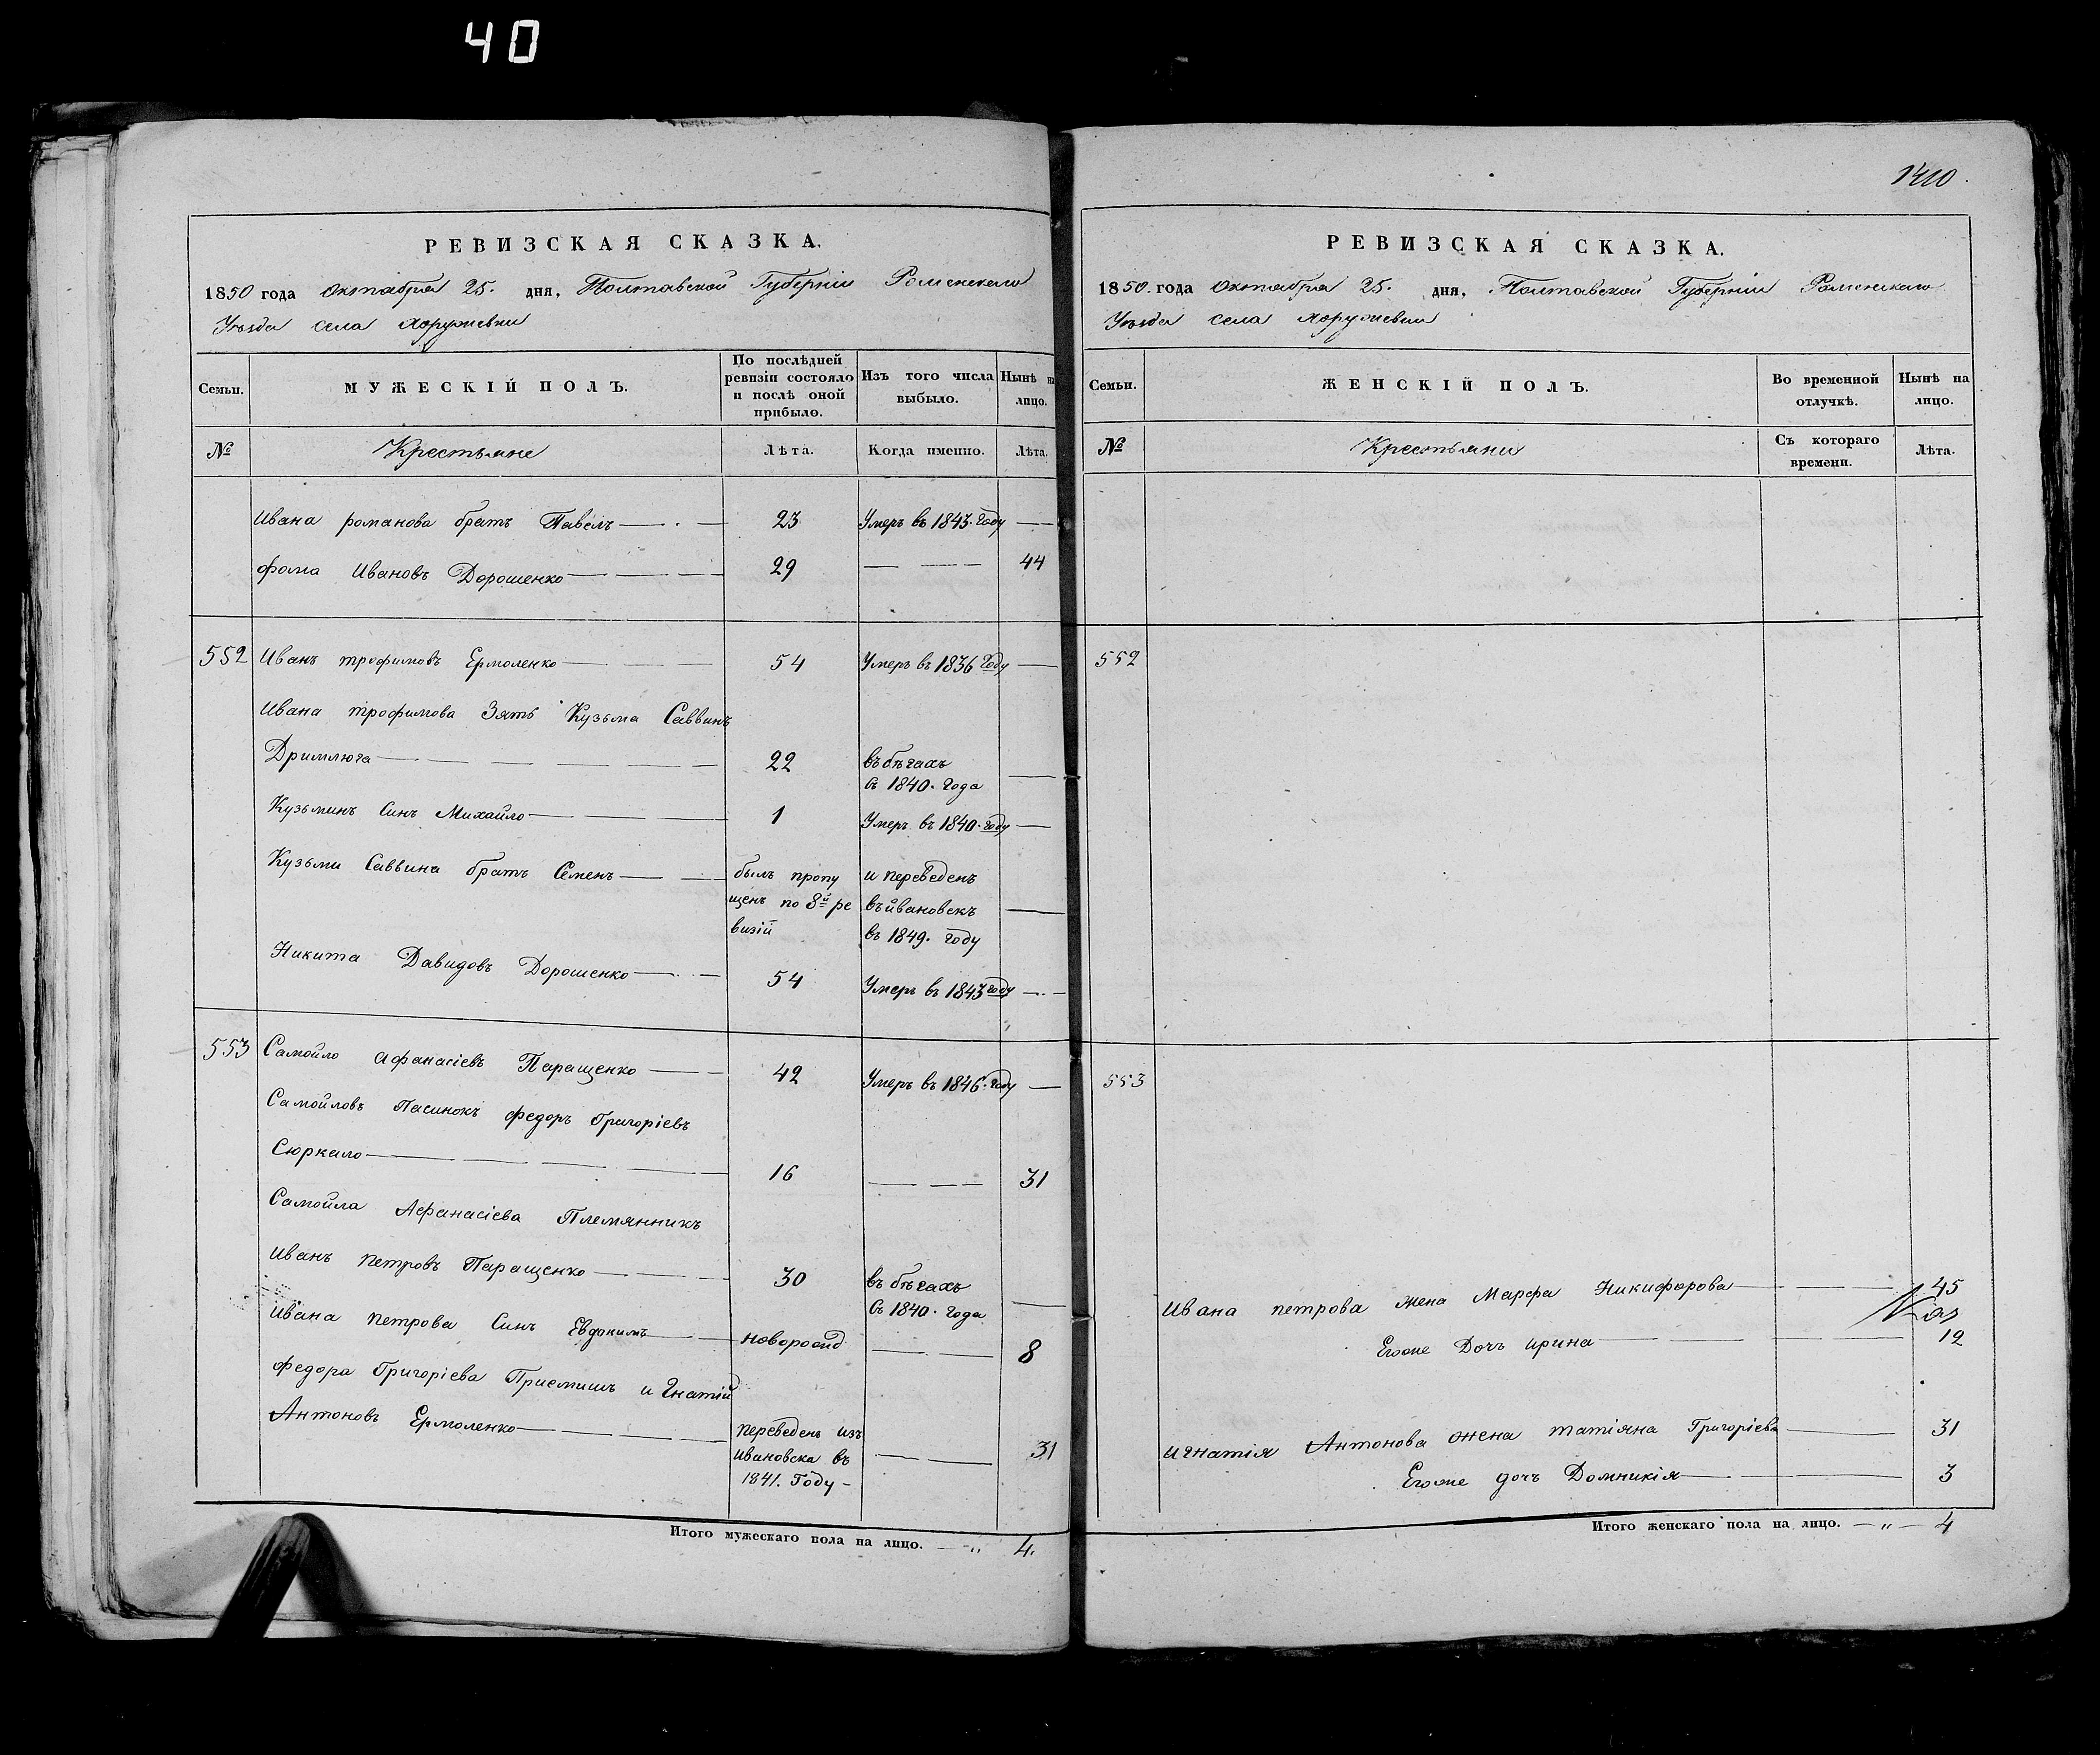 40
1410
РЕВИЗСКАЯ СКАЗКА.
1850 года октября 25. дня, Полтавской Губерніи Роменскаго
Уѣзда села Хоружевки
Семьи.
МУЖЕСКІЙ ПОЛЪ.
По послѣдней ревизіи состояло и послѣ оной прибыло.
Изъ того числа выбыло.
Нынѣ на лицо.
№
Крестьяне
Лѣта.
Когда именно.
Лѣта.
Ивана романова братъ Павелъ — 23 Умеръ въ 1843. году —
фома Ивановъ Дорошенко — 29 — 44
552 Иванъ трофимовъ Ермоленко — 54 Умеръ въ 1836 году —
Ивана трофимова Зять Кузьма Саввинъ
Дримлюга — 22 въ бѣгахъ
съ 1840. года —
Кузьминъ Синъ Михайло — 1 Умеръ въ 1840. году —
Кузьми Саввина братъ Семенъ — былъ пропу и переведенъ
щенъ по 8й ре въ ивановскъ —
визій въ 1849. году
Никита Давидовъ Дорошенко — 54 Умеръ въ 1843 году —
553 Самойло Афанасіевъ Паращенко — 42 Умеръ въ 1846. году —
Самойловъ Пасинокъ федоръ Григоріевъ
Сюркало — 16 — 31
Самойла Афанасіева Племянникъ
Иванъ петровъ Паращенко — 30 въ бѣгахъ
съ 1840. года —
Ивана петрова Синъ Евдокимъ — новорожд — 8
федора Григоріева Приемишъ игнатій
Антоновъ Ермоленко — переведенъ изъ
ивановска въ — 31
1841. Году —
Итого мужескаго пола на лицо. — „ 4.
РЕВИЗСКАЯ СКАЗКА.
1850. года октября 25. дня, Полтавской Губерніи Роменскаго
Уѣзда села Хоружевки
Семьи.
ЖЕНСКІЙ ПОЛЪ.
Во временной отлучкѣ.
Нынѣ на лицо.
№
Крестьяни
Съ котораго времени.
Лѣта.
552
553
Ивана петрова жена Марфа Никифорова — 45
Егоже Дочъ ирина — 12
игнатія Антонова жена татіяна Григоріева — 31
Егоже дочъ Домникія — 3
Итого женскаго пола на лицо. — „ — 4